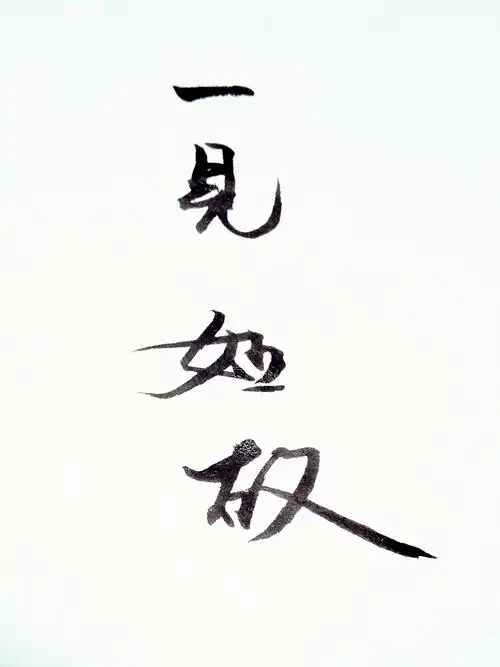 一見如故